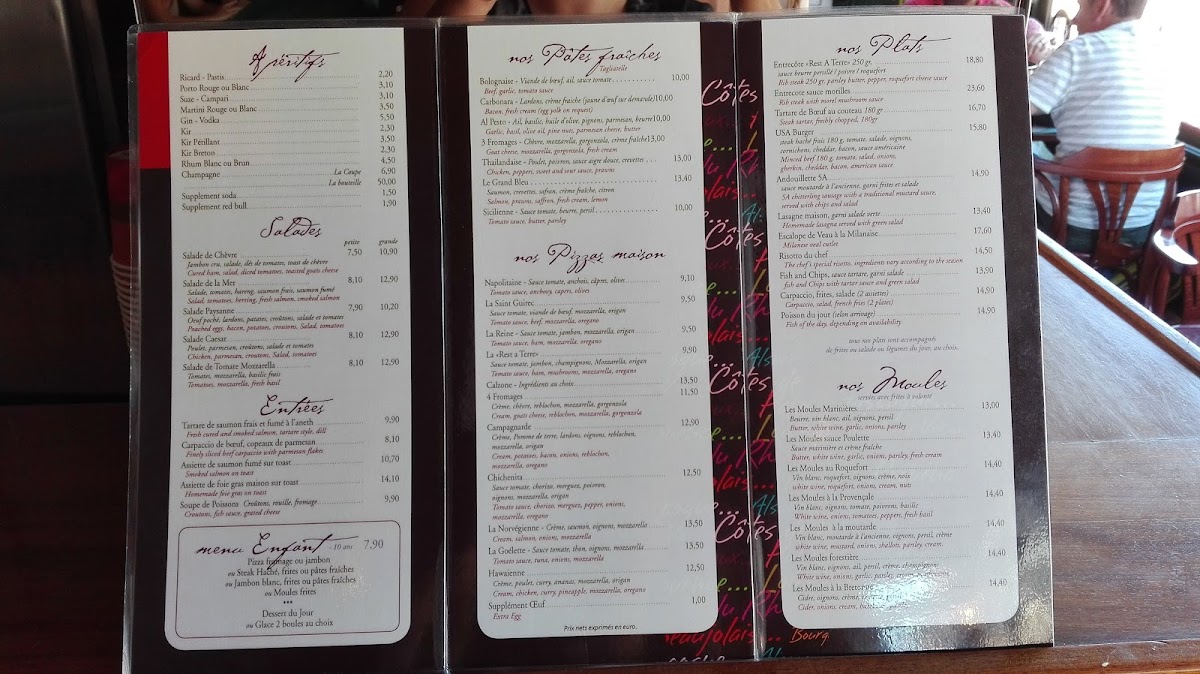 Apéritifs
Ricard - Pastis 2,20
Porto Rouge ou Blanc 3,10
Suze - Campari 3,10
Martini Rouge ou Blanc 3,50
Gin - Vodka 5,50
Kir 2,30
Kir Pétillant 3,50
Kir Breton 2,30
Rhum Blanc ou Brun 4,50
Champagne La Coupe 6,90
La bouteille 50,00
Supplement soda 1,50
Supplement red bull 1,90
Salades
petite grande
Salade de Chèvre 7,50 10,90
Jambon cru, salade, dés de tomates, toast de chèvre
Cured ham, salad, diced tomatoes, toasted goats cheese
Salade de la Mer 8,10 12,90
Salade, tomates, hareng, saumon frais, saumon fumé
Salad, tomatoes, herring, fresh salmon, smoked salmon
Salade Paysanne 7,90 10,20
Oeuf poché, lardons, patates, croûtons, salade et tomates
Poached eggs, bacon, potatoes, croutons, Salad, tomatoes
Salade Caesar 8,10 12,90
Poulet, parmesan, croûtons, salade et tomates
Chicken, parmesan, croutons, Salad, tomatoes
Salade de Tomate Mozzarella 8,10 12,90
Tomates, mozzarella, basilic frais
Tomatoes, mozzarella, fresh basil
Entrées
Tartare de saumon frais et fumé à l'aneth 9,90
Fresh cured and smoked salmon, tartare style, dill
Carpaccio de bœuf, copeaux de parmesan 8,10
Finely sliced beef carpaccio with parmesan flakes
Assiette de saumon fumé sur toast 10,70
Smoked salmon on toast
Assiette de foie gras maison sur toast 14,10
Homemade foie gras on toast
Soupe de Poissons Croûtons, rouille, fromage 9,90
Croutons, fish sauce, grated cheese
menu Enfant - 10 ans 7,90
Pizza fromage ou jambon
ou Steak Haché, frites ou pâtes fraîches
ou Jambon blanc, frites ou pâtes fraîches
ou Moules frites
***
Dessert du Jour
ou Glace 2 boules au choix
nos Pâtes fraîches
Tagliatelle
Bolognaise - Viande de bœuf, ail, sauce tomate 10,00
Beef, garlic, tomato sauce
Carbonara - Lardons, crème fraiche (jaune d'œuf sur demande) 10,00
Bacon, fresh cream (egg yolk on request)
Al Pesto - Ail, basilic, huile d'olive, pignons, parmesan, beurre 10,00
Garlic, basil, olive oil, pine nuts, parmesan cheese, butter
3 Fromages - Chèvre, mozzarella, gorgonzola, crème fraîche 13,00
Goat cheese, mozzarella, gorgonzola, fresh cream
Thailandaise - Poulet, poivron, sauce aigre douce, crevettes 13,00
Chicken, peppers, sweet and sour sauce, prawns
Le Grand Bleu 13,40
Saumon, crevettes, safran, crème fraiche, citron
Salmon, prawns, saffron, fresh cream, lemon
Sicilienne - Sauce tomate, beurre, persil 10,00
Tomato sauce, butter, parsley
nos Pizzas maison
Napolitaine - Sauce tomate, anchois, câpres, olives 9,10
Tomato sauce, anchovy, capers, olives
La Saint Guirec 9,50
Sauce tomate, viande de bœuf, mozzarella, origan
Tomato sauce, beef, mozzarella, oregano
La Reine - Sauce tomate, jambon, mozzarella, origan 9,50
Tomato sauce, ham, mozzarella, oregano
La «Rest a Terre» 9,90
Sauce tomate, jambon, champignons, Mozzarella, origan
Tomato sauce, ham, mushrooms, mozzarella, oregano
Calzone - Ingrédients au choix 13,50
4 Fromages 11,50
Crème, chèvre, reblochon, mozzarella, gorgonzola
Cream, goats cheese, reblochon, mozzarella, gorgonzola
Campagnarde 12,90
Crème, Pomme de terre, lardons, oignons, reblochon,
mozzarella, origan
Cream, potatoes, bacon, onions, reblochon,
mozzarella, oregano
Chichenita 12,50
Sauce tomate, chorizo, merguez, poivron,
oignons, mozzarella, origan
Tomato sauce, chorizo, merguez, pepper, onions,
mozzarella, oregano
La Norvégienne - Crème, saumon, oignons, mozzarella 13,50
Cream, salmon, onions, mozzarella
La Goëlette - Sauce tomate, thon, oignons, mozzarella 13,50
Tomato sauce, tuna, onions, mozzarella
Hawaïenne 12,50
Crème, poulet, curry, ananas, mozzarella, origan
Cream, chicken, curry, pineapple, mozzarella, oregano
Supplément Œuf 1,00
Extra Egg
Prix nets exprimés en euro.
nos Plats
Entrecôte «Rest A Terre» 250 gr. 18,80
sauce beurre persillé / poivre / roquefort
Rib steak 250 gr, parsley butter, pepper, roquefort cheese sauce
Entrecote sauce morilles 23,60
Rib steak with morel mushroom sauce
Tartare de Bœuf au couteau 180 gr 16,70
Steak tartar, freshly chopped, 180gr
USA Burger 15,80
steak haché frais 180 g, tomate, salade, oignons,
cornichons, cheddar, bacon, sauce américaine
Minced beef 180 g, tomato, salad, onions,
gherkin, cheddar, bacon, american sauce
Andouillette 5A 14,90
sauce moutarde à l'ancienne, garni frites et salade
5A chitterling sausage with a traditional mustard sauce,
served with chips and salad
Lasagne maison, garni salade verte 13,40
Homemade lasagna served with green salad
Escalope de Veau à la Milanaise 17,60
Milanese veal cutlet
Risotto du chef 14,50
The chef's special risotto, ingredients vary according to the season
Fish and Chips, sauce tartare, garni salade 13,90
fish and Chips with tartar sauce and green salad
Carpaccio, frites, salade (2 assiettes) 14,90
Carpaccio, salad, french fries (2 plates)
Poisson du jour (selon arrivage) 14,90
Fish of the day, depending on availability
tous nos plats sont accompagnés
de frites ou salade ou légumes du jour, au choix.
nos Moules
servies avec frites à volonté
Les Moules Marinières 13,00
Beurre, vin blanc, ail, oignons, persil
Butter, white wine, garlic, onions, parsley
Les Moules sauce Poulette 13,40
Sauce marinière et crème fraîche
Butter, white wine, garlic, onions, parsley, fresh cream
Les Moules au Roquefort 14,40
Vin blanc, roquefort, oignons, crème, noix
white wine, roquefort, onions, cream, nuts
Les Moules à la Provençale 14,40
Vin blanc, oignons, tomate, poivrons, basilic
White wine, onions, tomatoes, peppers, fresh basil
Les Moules à la moutarde 14,40
Vin blanc, moutarde à l'ancienne, oignons, persil, crème
white wine, mustard, onions, shallots, parsley, cream.
Les Moules forestière 14,40
Vin blanc, oignons, ail, persil, crème, champignons
White wine, onions, garlic, parsley,
Les Moules à la Bretonne 14,40
Cidre, oignons, crème,
Cider, onions, cream,
Côtes
Côtes
Côtes
Côtes
Bourg